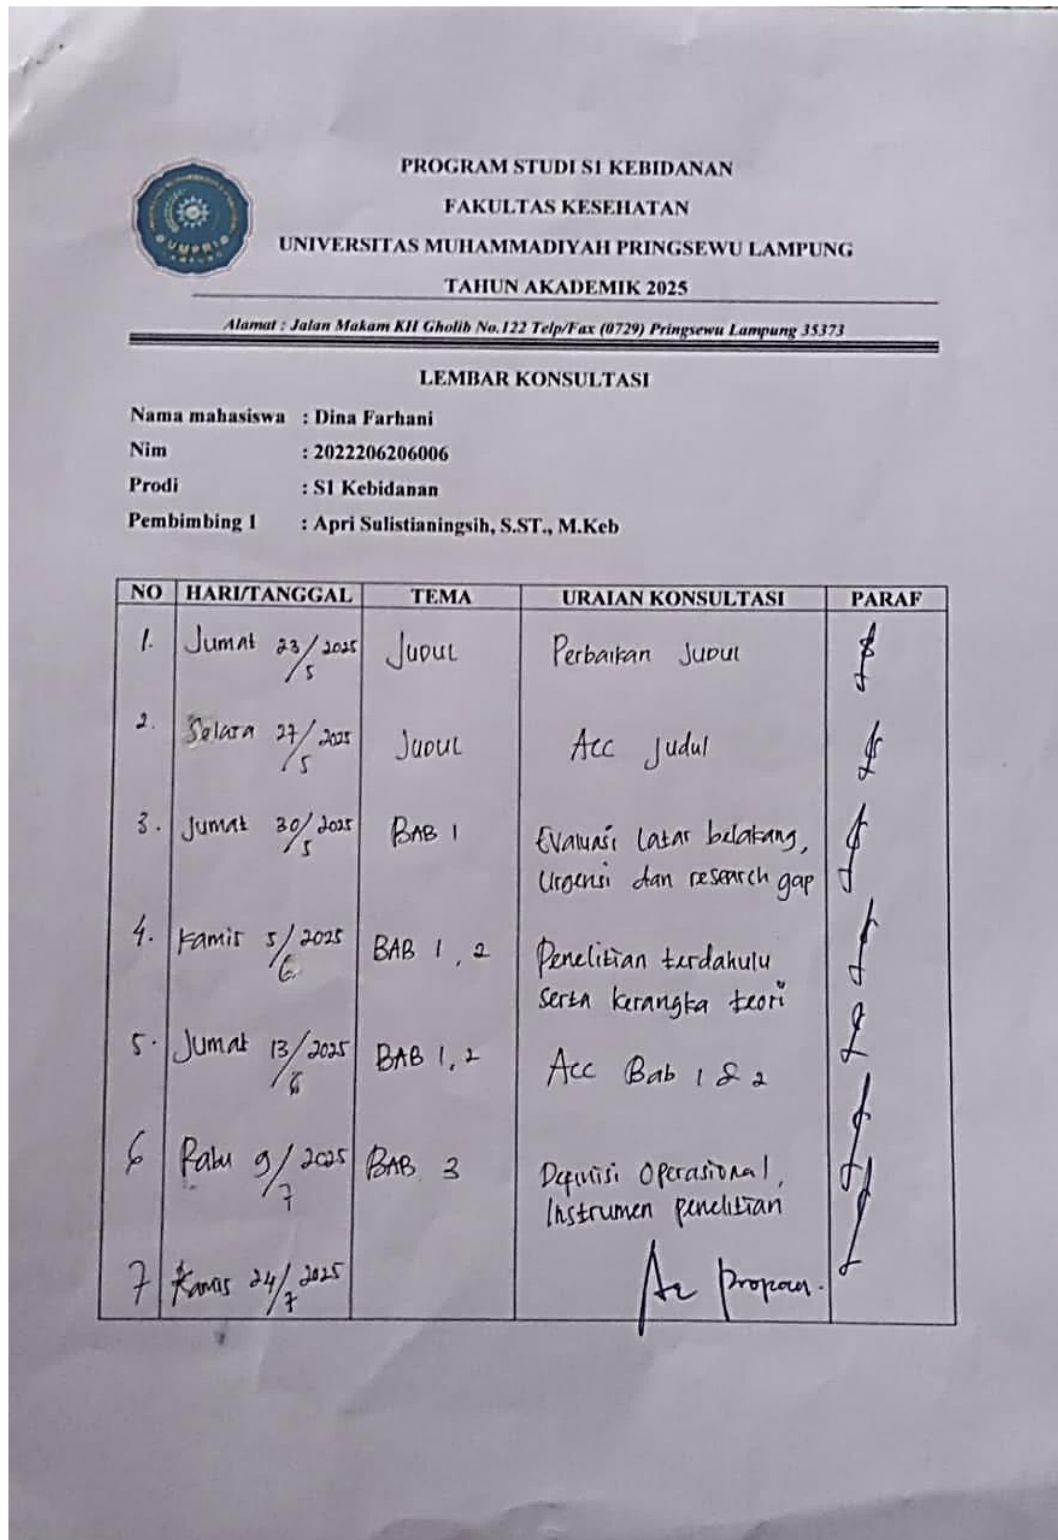 PROGRAM STUDI S1 KEBIDANAN
FAKULTAS KESEHATAN
UNIVERSITAS MUHAMMADIYAH PRINGSEWU LAMPUNG
TAHUN AKADEMIK 2025
Alamat : Jalan Makam KH Gholib No.122 Telp/Fax (0729) Pringsewu Lampung 35373
UMPRI
LEMBAR KONSULTASI
Nama mahasiswa : Dina Farhani
Nim : 2022206206006
Prodi : S1 Kebidanan
Pembimbing 1 : Apri Sulistianingsih, S.ST., M.Keb
NO HARI/TANGGAL TEMA URAIAN KONSULTASI PARAF
1. Jumat 23/5 2025 Judul Perbaikan Judul
2. Selasa 27/5 2025 Judul Acc Judul
3. Jumat 30/5 2025 BAB 1 Evaluasi latar belakang,
Urgensi dan research gap
4. Kamis 5/6 2025 BAB 1, 2 Penelitian terdahulu
serta kerangka teori
5. Jumat 13/6 2025 BAB 1, 2 Acc Bab 1 & 2
6 Rabu 9/7 2025 BAB 3 Definisi Operasional,
Instrumen penelitian
7 Kamis 24/7 2025